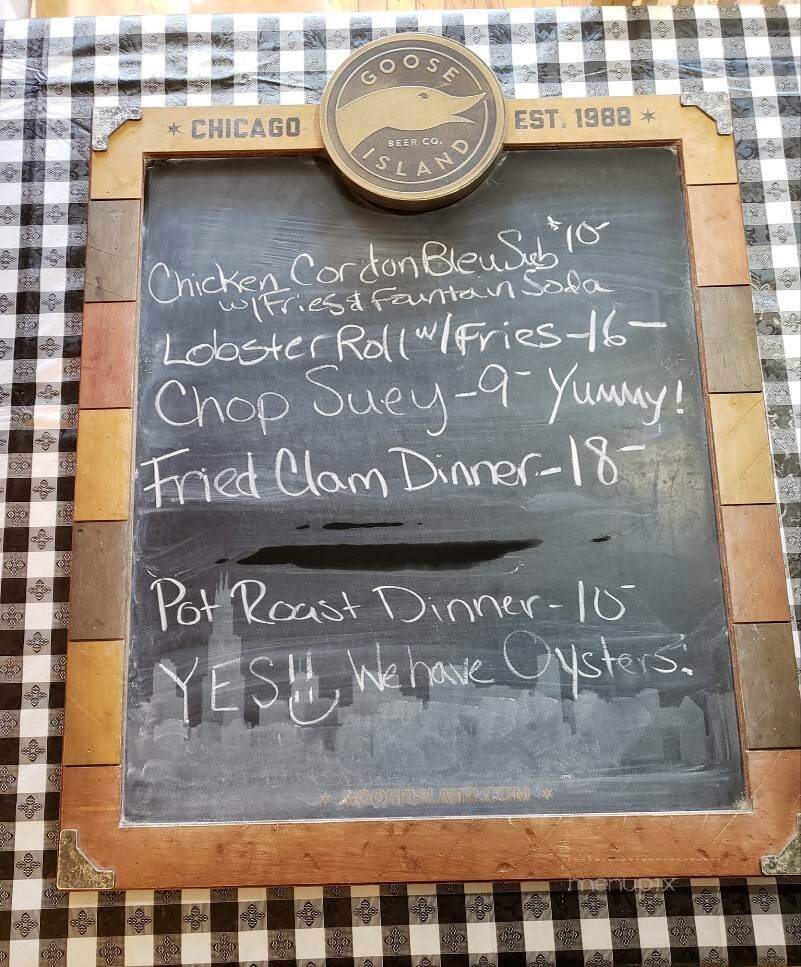 GOOSE
* CHICAGO
EST. 1988 *
BEER CO.
ISLAND
Chicken Cordon Bleu Sub $10-
w/Fries & Fountain Soda
Lobster Roll w/Fries-16-
Chop Suey-9- Yummy!
Fried Clam Dinner-18-
Pot Roast Dinner-10-
YES!! We have Oysters.
* GOOSEISLAND.COM *
menupix